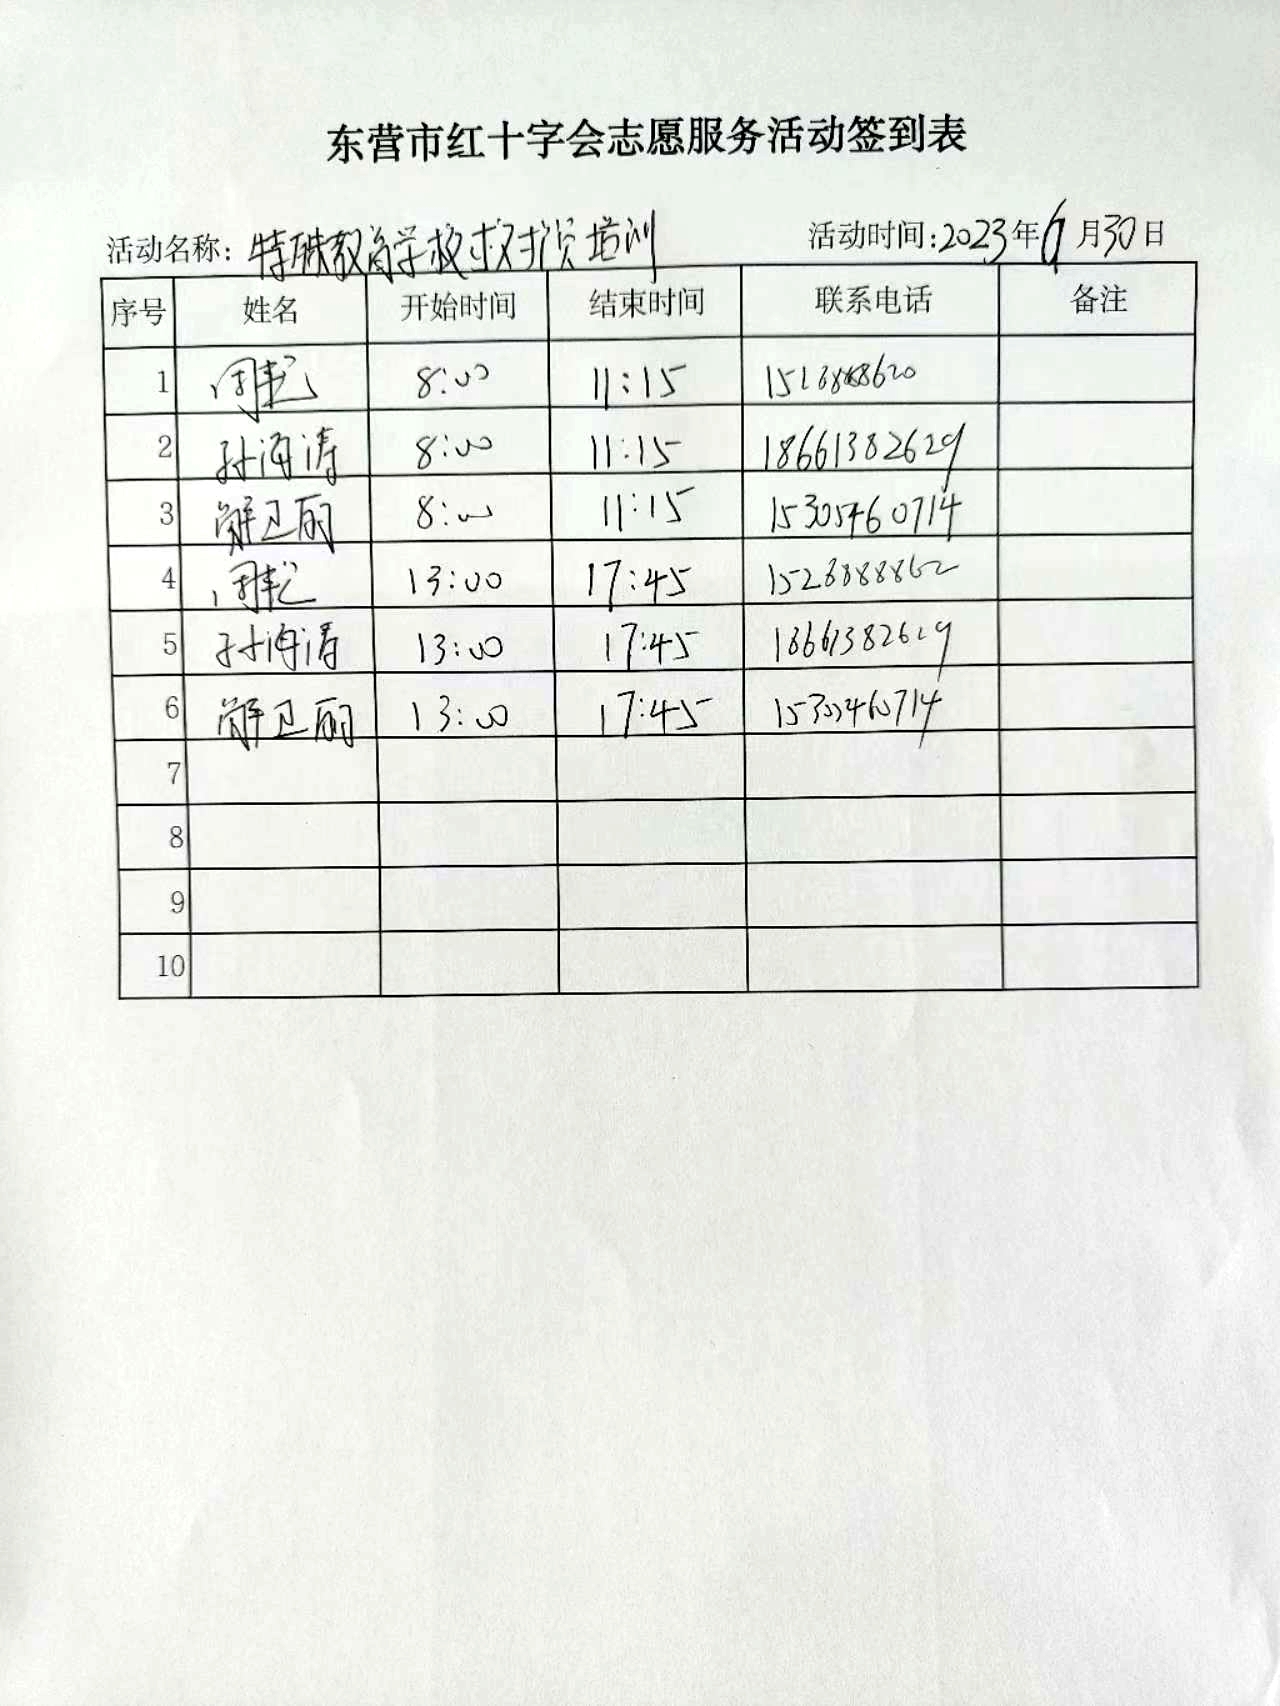 东营市红十字会志愿服务活动签到表
活动名称: 特殊教育学校救护员培训 活动时间:2023年6月30日
序号 姓名 开始时间 结束时间 联系电话 备注
1 8:00 11:15
2 孙海涛 8:00 11:15 18661382629
3 解卫丽 8:00 11:15 15305460714
4 13:00 17:45
5 孙海涛 13:00 17:45 18661382629
6 解卫丽 13:00 17:45 15305460714
7
8
9
10